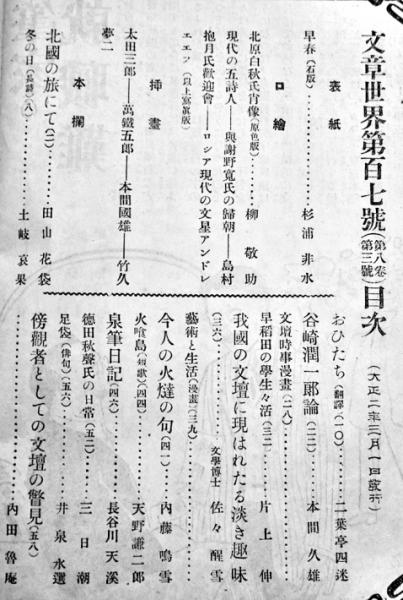 文章世界第百七號(第八卷第三號)目次
(大正二年三月一回發行)
表紙
早春(石版)……杉浦非水
口繪
北原白秋氏肖像(原色版)……柳敬助
現代の五詩人――與謝野寬氏の歸朝――島村
抱月氏歡迎會――ロシア現代の文星アンドレ
エエフ(以上寫眞版)
挿畫
太田三郎――萬鐵五郎――本間國雄――竹久
夢二
本欄
北國の旅にて(二)……田山花袋
冬の日(長詩)(八)……土岐哀果
おひたち(翻譯)(一〇)……二葉亭四迷
谷崎潤一郞論(二二)……本間久雄
文壇時事漫畫(二八)
早稻田の學生々活(三二)……片上伸
我國の文壇に現はれたる淡き趣味
(三六)……文學博士 佐々醒雪
藝術と生活(漫畫)(三九)
今人の火燵の句(四一)……內藤鳴雪
火喰鳥(短歌)(四四)……天野謙二郎
泉筆日記(四六)……長谷川天溪
德田秋聲氏の日常(五二)……三日潮
足袋(俳句)(五六)……井泉水選
傍觀者としての文壇の瞥見(五八)
……內田魯庵